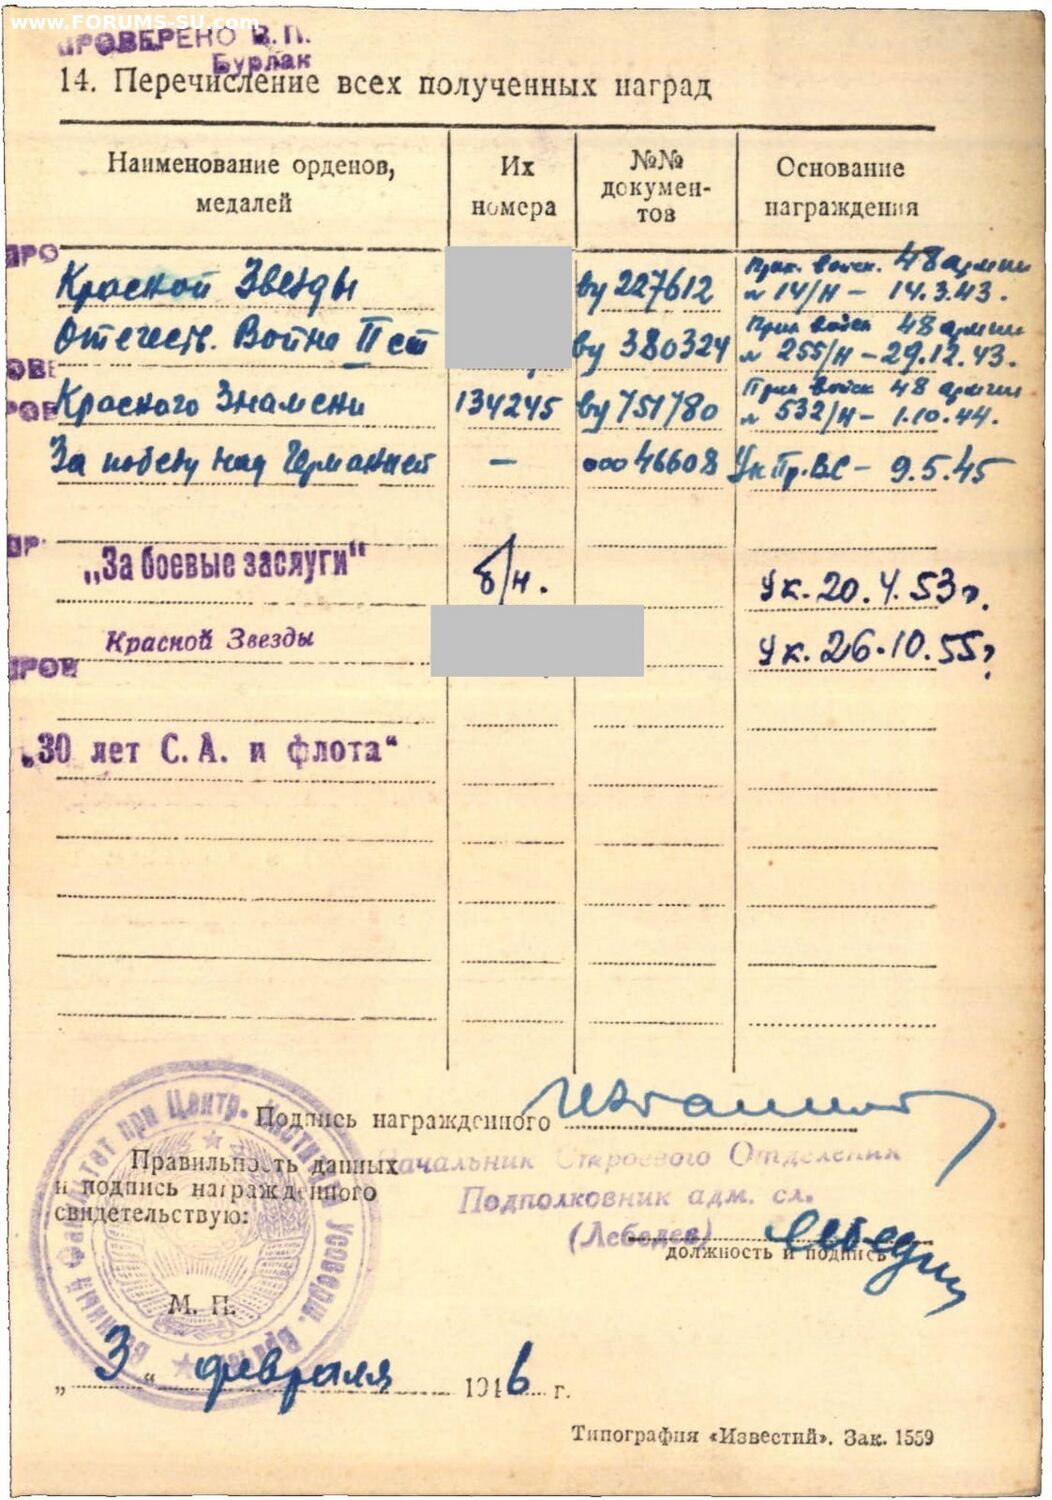 www.FORUMS-SU.com
ПРОВЕРЕНО В.П.
Бурлак
14. Перечисление всех полученных наград
Наименование орденов, медалей
Их номера
№№ докумен-тов
Основание награждения
ПРО
Красной Звезды ву 227612 Прик. войск. 48 армии
№ 14/н – 14.3.43.
Отечеств. Война II ст ву 380324 Прик войск 48 армии
№ 255/н – 29.12.43.
ОВЕ
РОВ
Красного Знамени 134245 ву 751780 Прик войск 48 армии
№ 532/н – 1.10.44.
За победу над Германией – 00046608 Ук Пр. ВС – 9.5.45
ПР
„За боевые заслуги“ б/н. Ук. 20.4.53г.
Красной Звезды Ук. 26.10.55г
ПРОВ
„30 лет С. А. и флота“
Подпись награжденного
Правильность данных
и подпись награжденного
свидетельствую:
Начальник Строевого Отделения
Подполковник адм. сл.
(Лебедев)
должность и подпись
М. П.
„3“ февраля 1946 г.
Типография «Известий». Зак. 1559